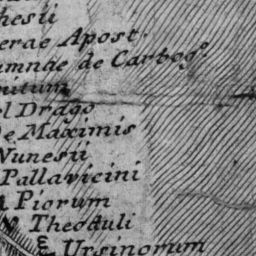 hesii
erae Apost.
umnae de Carbog.º
nitum
el Drago
De Maximis
Nunesii
Pallavicini
Piorum
Theoduli
& Ursinorum